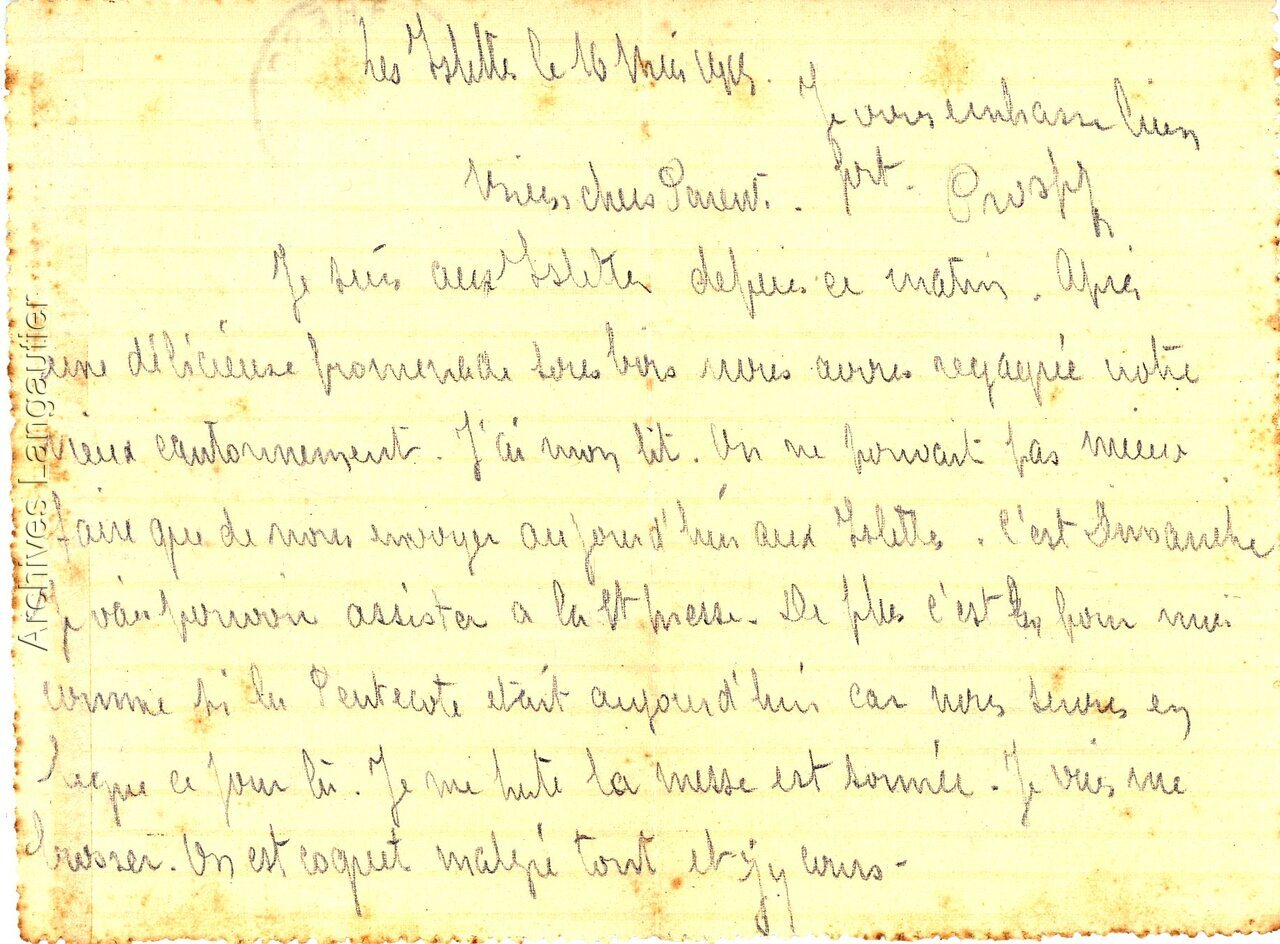 Les Islettes le 16 Mai 1915.
Je vous embrasse bien
fort. Prosper
Mes chers Parents.
Je suis aux Islettes depuis ce matin. Après
une délicieuse promenade sous bois nous avons regagné notre
vieux cantonnement. J'ai mon lit. On ne pouvait pas mieux
faire que de nous envoyer aujourd'hui aux Islettes. C'est Dimanche
Je vais pouvoir assister a la Ste messe. De plus c'est pour moi
comme si la Pentecote était aujourd'hui car nous serons en
ligne ce jour là. Je me hate la messe est sonnée. Je vais me
brosser. On est coquet malgré tout et j'y cours-
Archives Langauffier